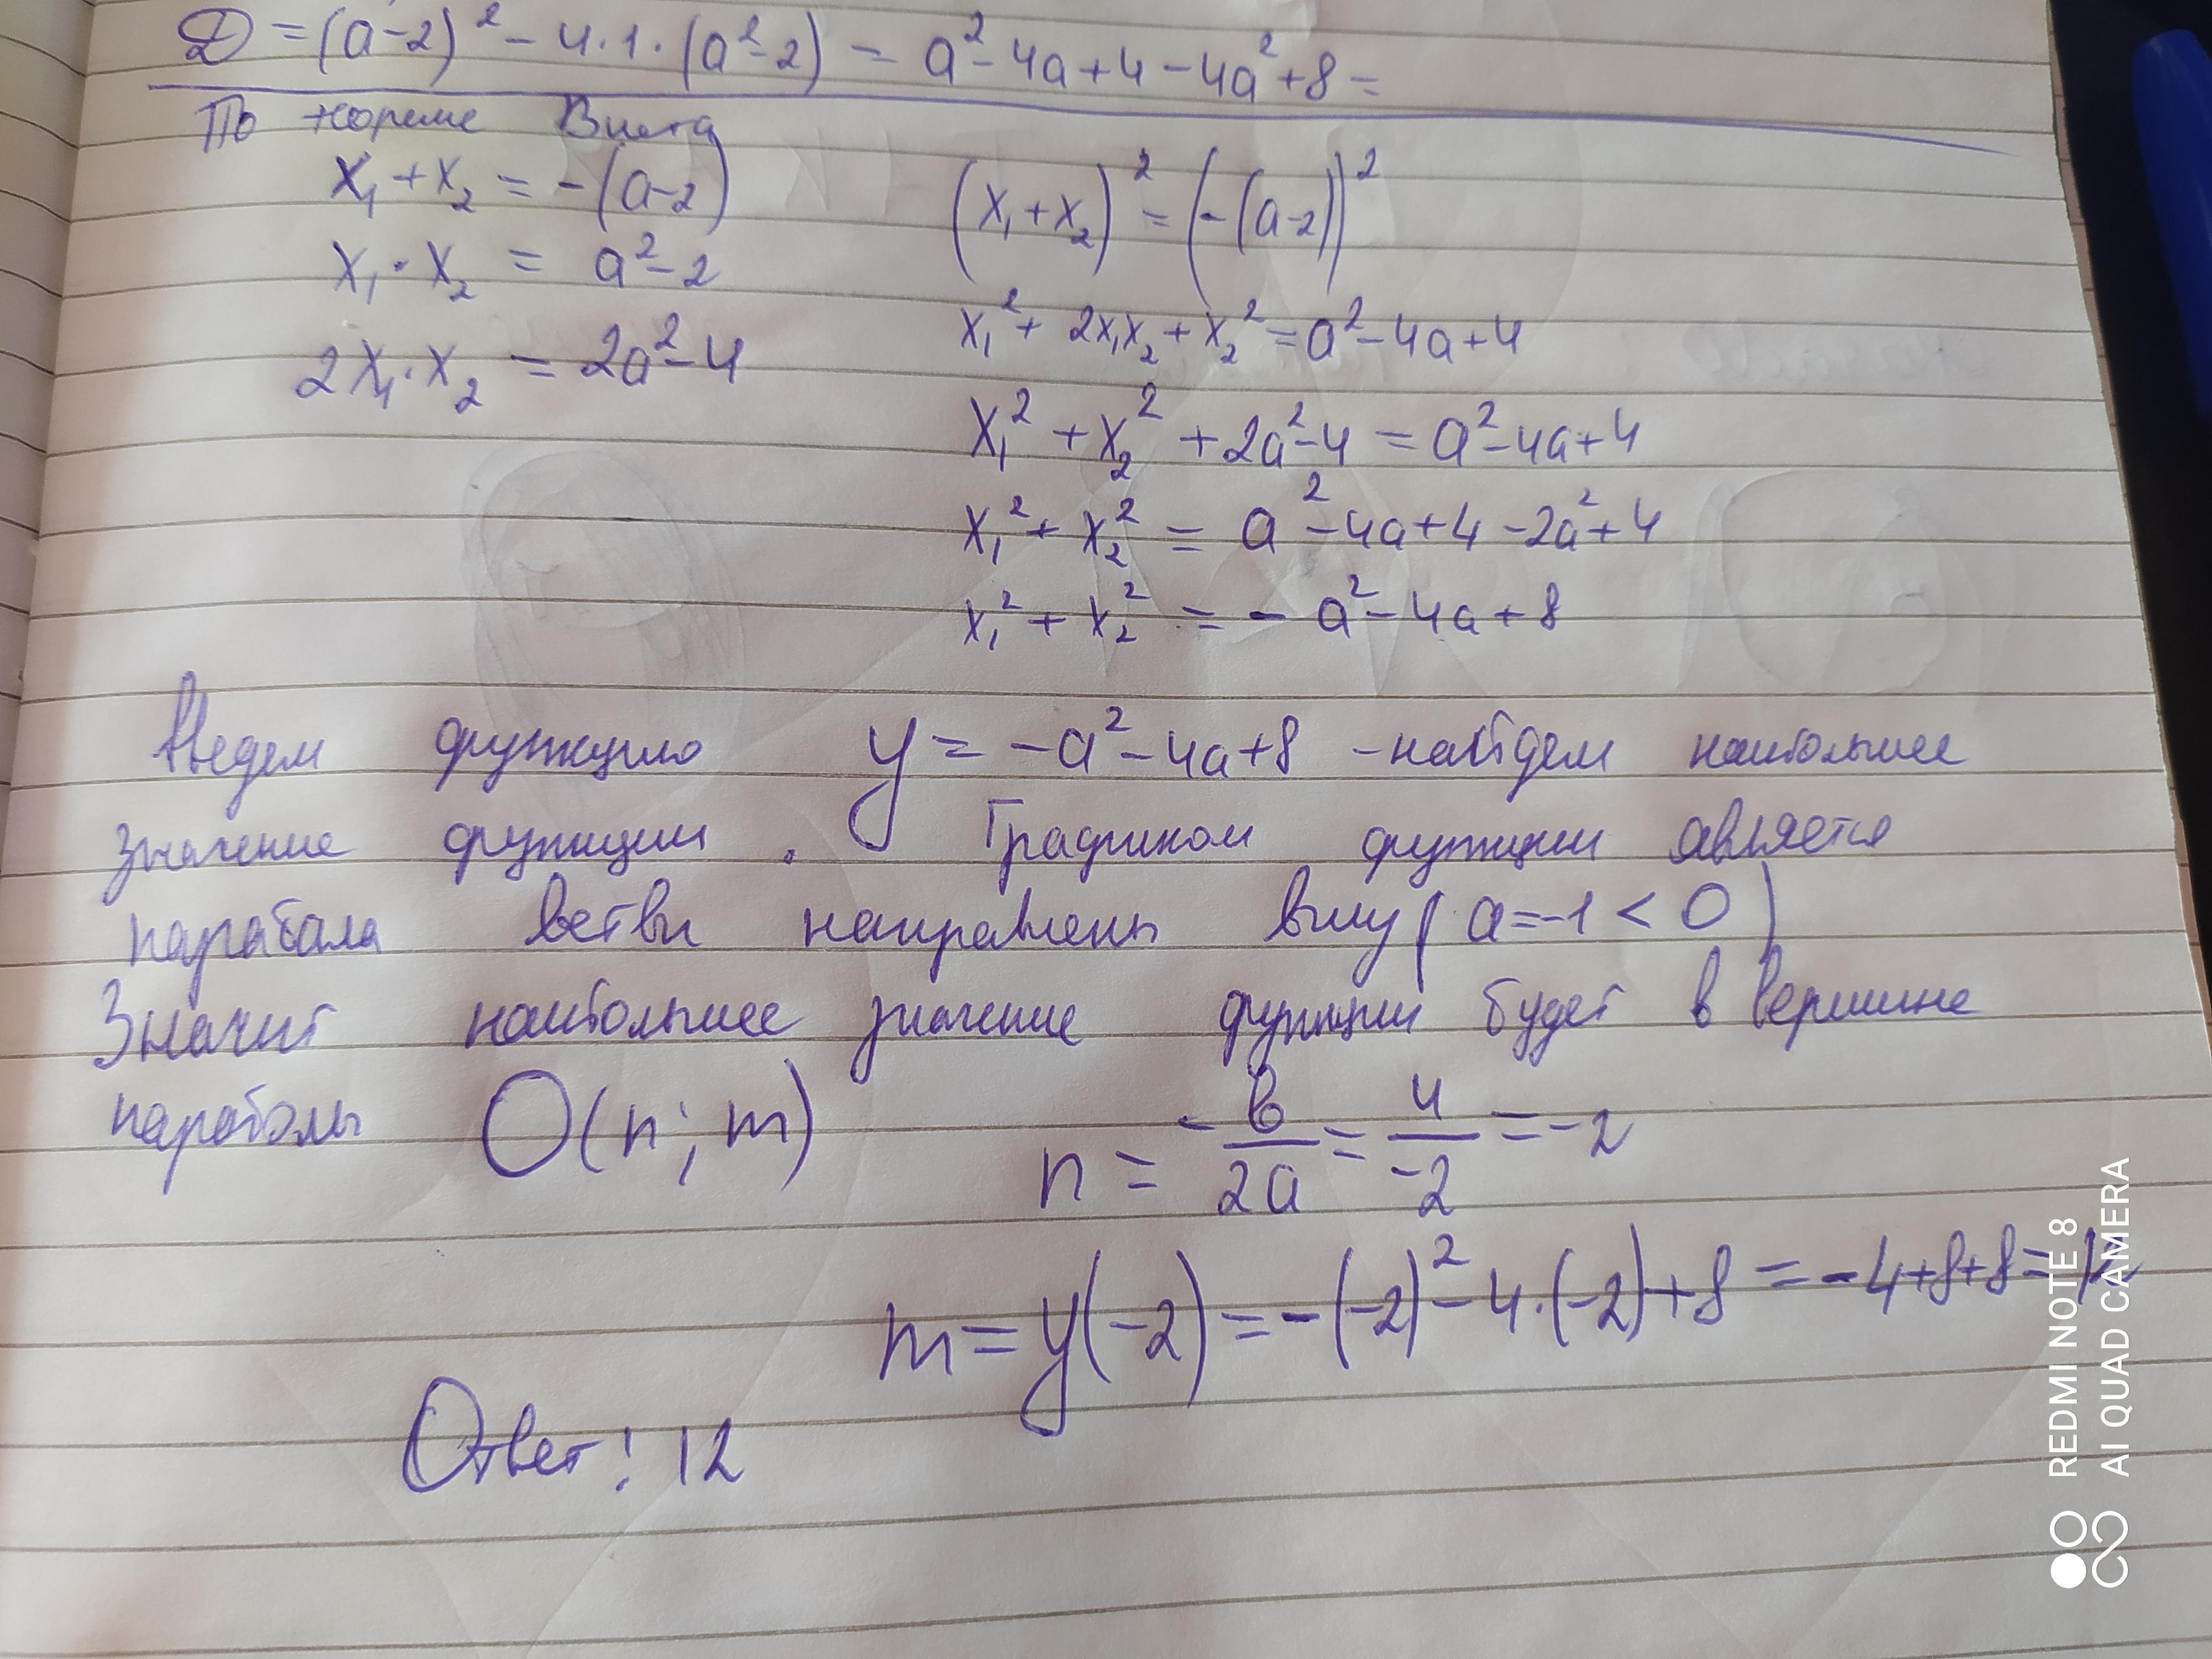 D = (a-2)² - 4·1·(a²-2) = a²-4a+4-4a²+8 =
По теореме Виета
x₁+x₂ = -(a-2)
x₁·x₂ = a²-2
2x₁·x₂ = 2a²-4
(x₁+x₂)² = (-(a-2))²
x₁²+2x₁x₂+x₂²=a²-4a+4
x₁²+x₂²+2a²-4 = a²-4a+4
x₁²+x₂² = a²-4a+4-2a²+4
x₁²+x₂² = -a²-4a+8
Введем функцию y = -a²-4a+8 - найдем наибольшее
значение функции. Графиком функции является
парабола ветви направлены вниз (a=-1<0)
Значит наибольшее значение функции будет в вершине
параболы O(n; m) n = -b/2a = 4/-2 = -2
m = y(-2) = -(-2)²-4·(-2)+8 = -4+8+8=12
Ответ: 12
REDMI NOTE 8
AI QUAD CAMERA